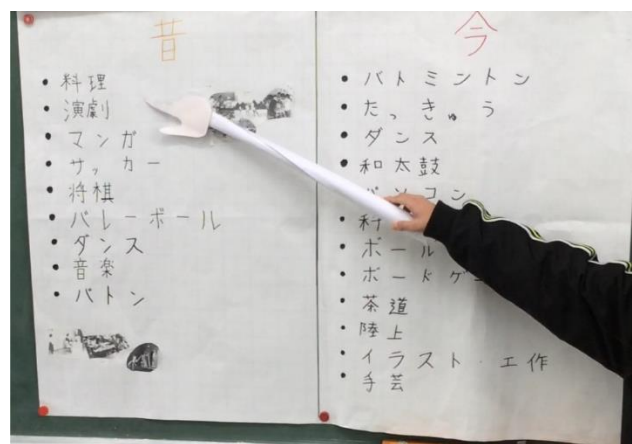 昔
・料理
・演劇
・マンガ
・サッカー
・将棋
・バレーボール
・ダンス
・音楽
・バトン
今
・バトミントン
・たっきゅう
・ダンス
・和太鼓
・パソコン
・科
・ボール
・ボードゲー
・茶道
・陸上
・イラスト・工作
・手芸